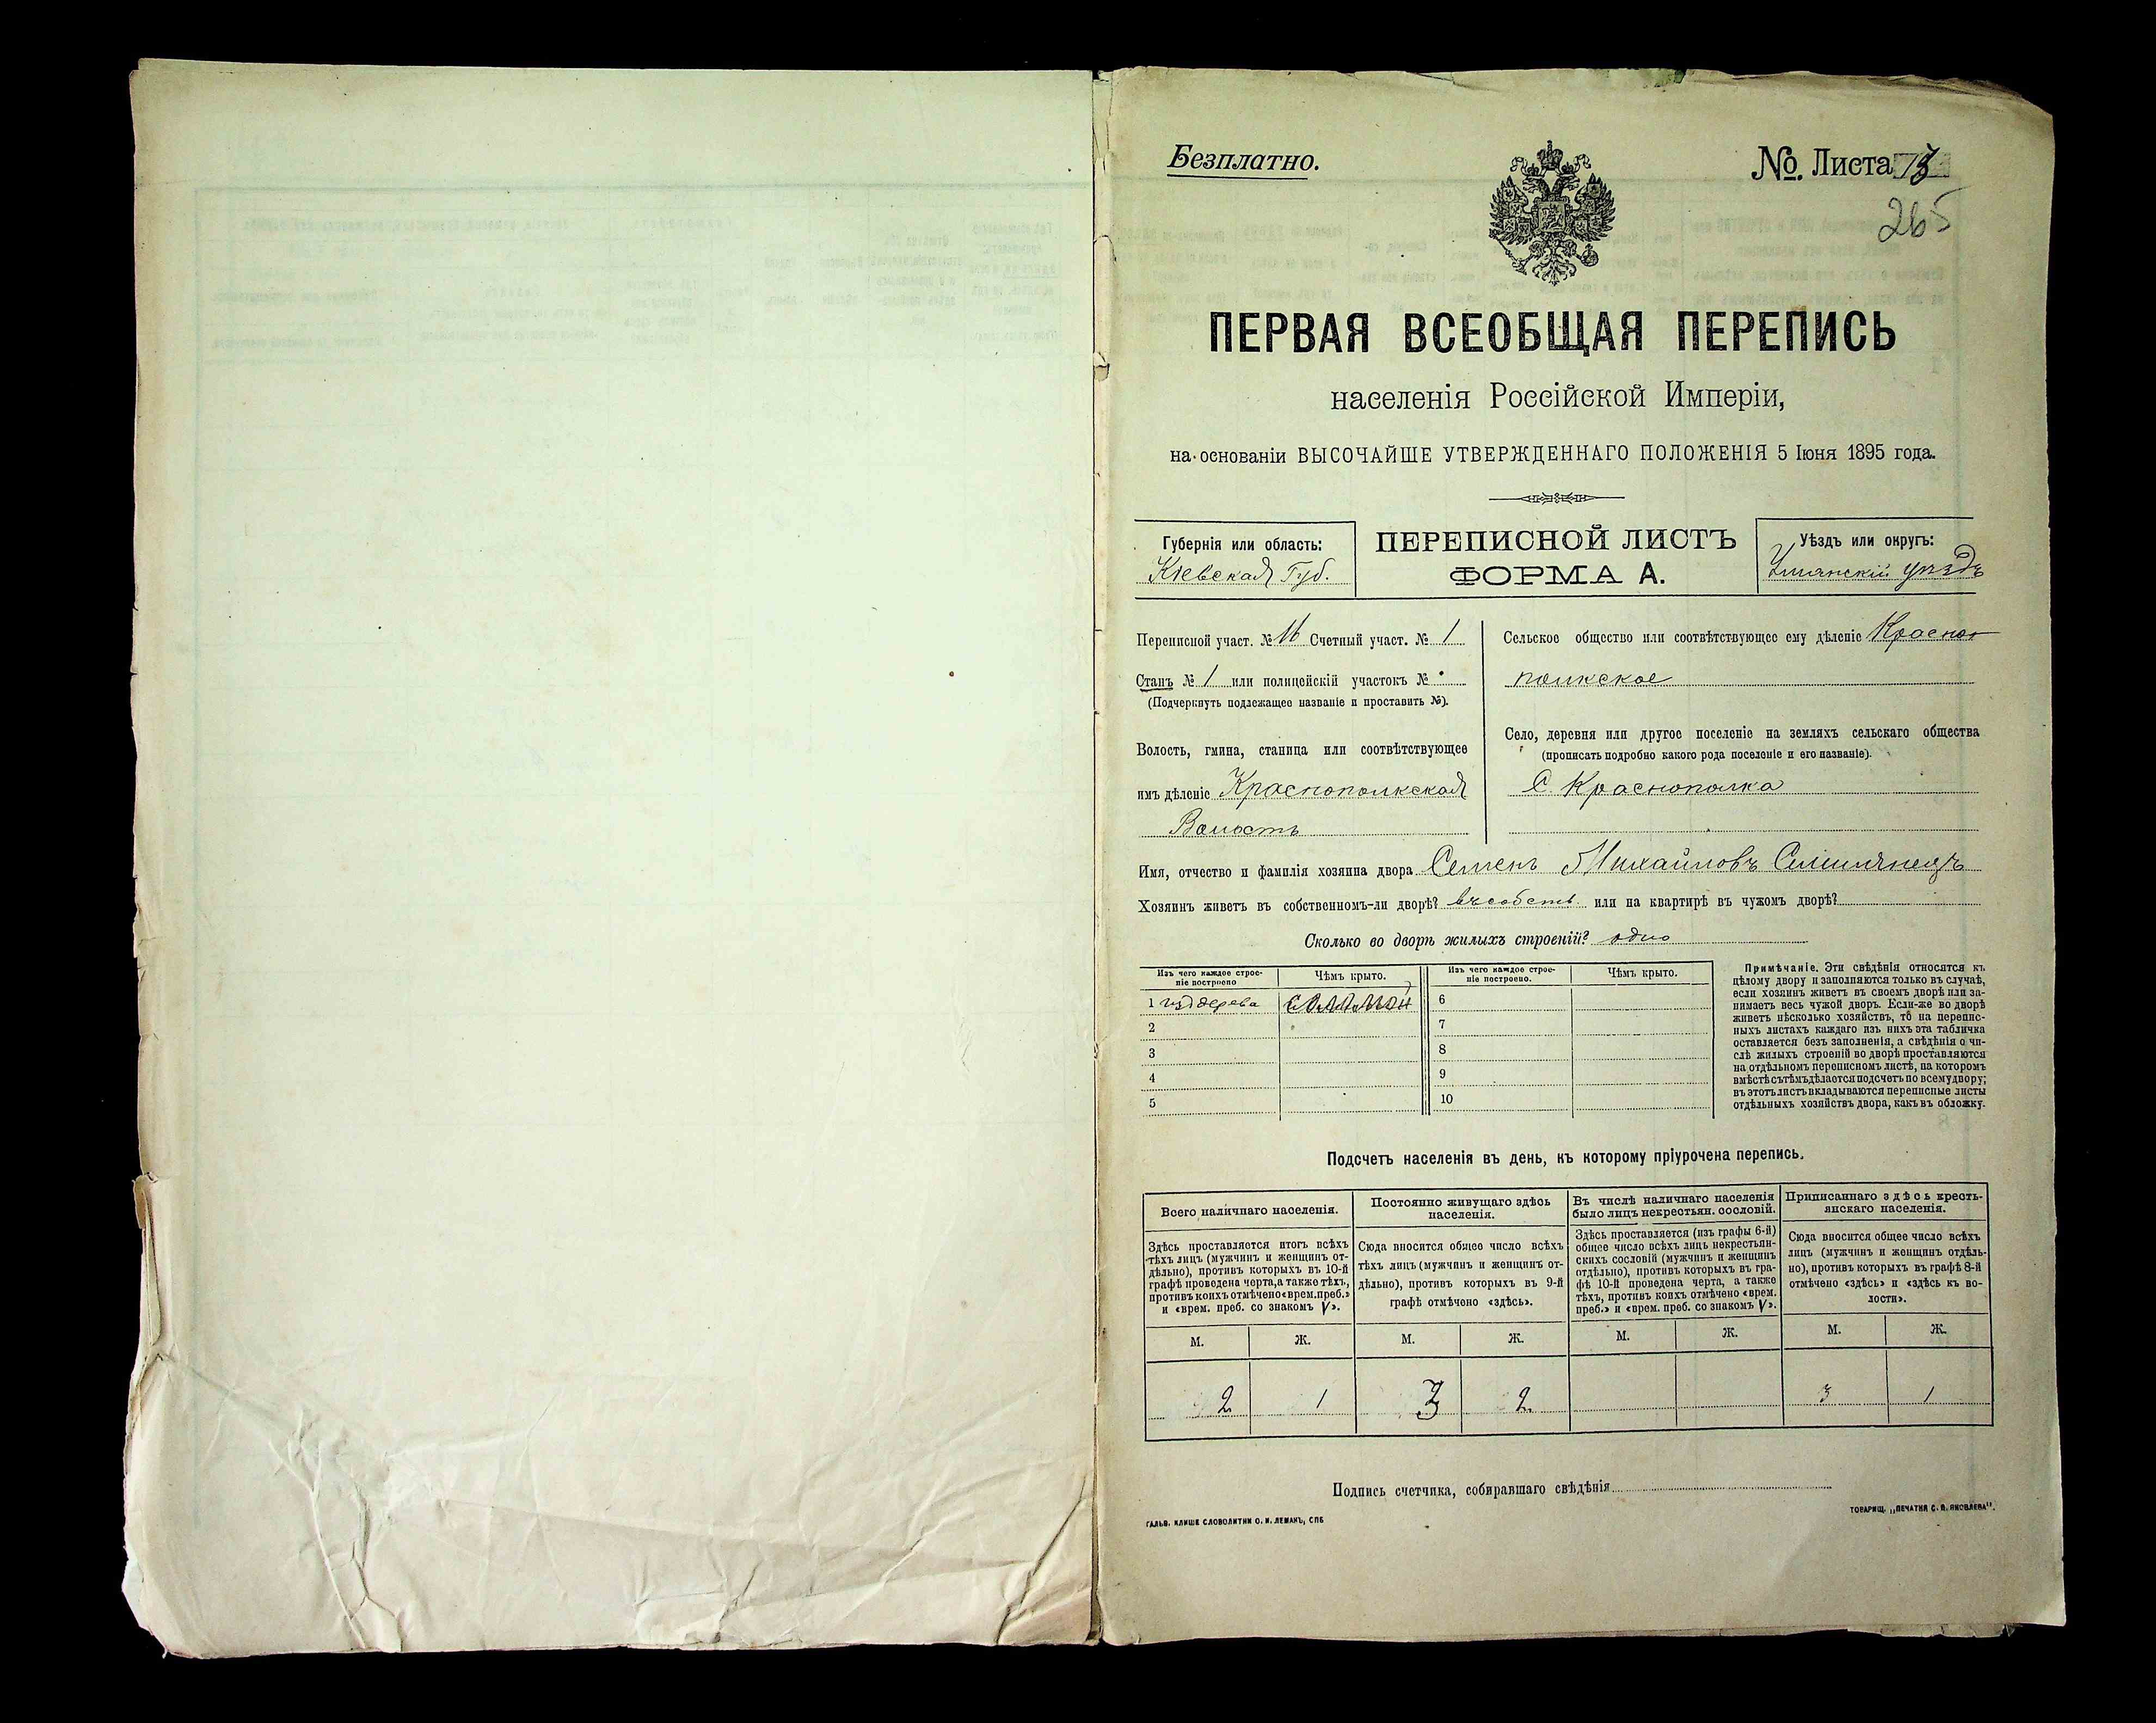 Безплатно.
№. Листа 13
265
ПЕРВАЯ ВСЕОБЩАЯ ПЕРЕПИСЬ
населенія Россійской Имперіи,
на основаніи ВЫСОЧАЙШЕ УТВЕРЖДЕННАГО ПОЛОЖЕНІЯ 5 Іюня 1895 года.
Губернія или область:
Кіевская Губ.
ПЕРЕПИСНОЙ ЛИСТЪ
ФОРМА А.
Уѣздъ или округъ:
Уманскій уѣздъ
Переписной участ. № 16 Счетный участ. № 1
Станъ № 1 или полицейскій участокъ №
(Подчеркнуть подлежащее названіе и проставить №).
Волость, гмина, станица или соотвѣтствующее
имъ дѣленіе Краснополкская
Волость
Сельское общество или соотвѣтствующее ему дѣленіе Красно-
полкское
Село, деревня или другое поселеніе на земляхъ сельскаго общества
(прописать подробно какого рода поселеніе и его названіе).
С. Краснополка
Имя, отчество и фамилія хозяина двора Семенъ Михайловъ
Хозяинъ живетъ въ собственномъ-ли дворѣ? въ собств. или на квартирѣ въ чужомъ дворѣ?
Сколько во дворѣ жилыхъ строеній? одно
Изъ чего каждое строе-
ніе построено
Чѣмъ крыто.
Изъ чего каждое строе-
ніе построено.
Чѣмъ крыто.
1 изъ дерева соломой
2
3
4
5
6
7
8
9
10
Примѣчаніе. Эти свѣдѣнія относятся къ
цѣлому двору и заполняются только въ случаѣ,
если хозяинъ живетъ въ своемъ дворѣ или за-
нимаетъ весь чужой дворъ. Если-же во дворѣ
живетъ нѣсколько хозяйствъ, то на перепис-
ныхъ листахъ каждаго изъ нихъ эта табличка
оставляется безъ заполненія, а свѣдѣнія о чи-
слѣ жилыхъ строеній во дворѣ проставляются
на отдѣльномъ переписномъ листѣ, на которомъ
вмѣстѣ съ тѣмъ дѣлается подсчетъ по всему двору;
въ этотъ листъ вкладываются переписные листы
отдѣльныхъ хозяйствъ двора, какъ въ обложку.
Подсчетъ населенія въ день, къ которому пріурочена перепись.
Всего наличнаго населенія.
Здѣсь проставляется итогъ всѣхъ
тѣхъ лицъ (мужчинъ и женщинъ от-
дѣльно), противъ которыхъ въ 10-й
графѣ проведена черта, а также тѣхъ,
противъ коихъ отмѣчено «врем. преб.»
и «врем. преб. со знакомъ V».
Постоянно живущаго здѣсь
населенія.
Сюда вносится общее число всѣхъ
тѣхъ лицъ (мужчинъ и женщинъ от-
дѣльно), противъ которыхъ въ 9-й
графѣ отмѣчено «здѣсь».
Въ числѣ наличнаго населенія
было лицъ некрестьян. сословій.
Здѣсь проставляется (изъ графы 6-й)
общее число всѣхъ лицъ некрестьян-
скихъ сословій (мужчинъ и женщинъ
отдѣльно), противъ которыхъ въ гра-
фѣ 10-й проведена черта, а также
тѣхъ, противъ коихъ отмѣчено «врем.
преб.» и «врем. преб. со знакомъ V».
Приписаннаго здѣсь кресть-
янскаго населенія.
Сюда вносится общее число всѣхъ
лицъ (мужчинъ и женщинъ отдѣль-
но), противъ которыхъ въ графѣ 8-й
отмѣчено «здѣсь» и «здѣсь къ во-
лости».
М. Ж. М. Ж. М. Ж. М. Ж.
2 1 3 2 3 1
Подпись счетчика, собиравшаго свѣдѣнія
ГАЛЬВ. КЛИШЕ СЛОВОЛИТНИ О. И. ЛЕМАНЪ, СПБ
ТОВАРИЩ. „ПЕЧАТНЯ С. П. ЯКОВЛЕВА".